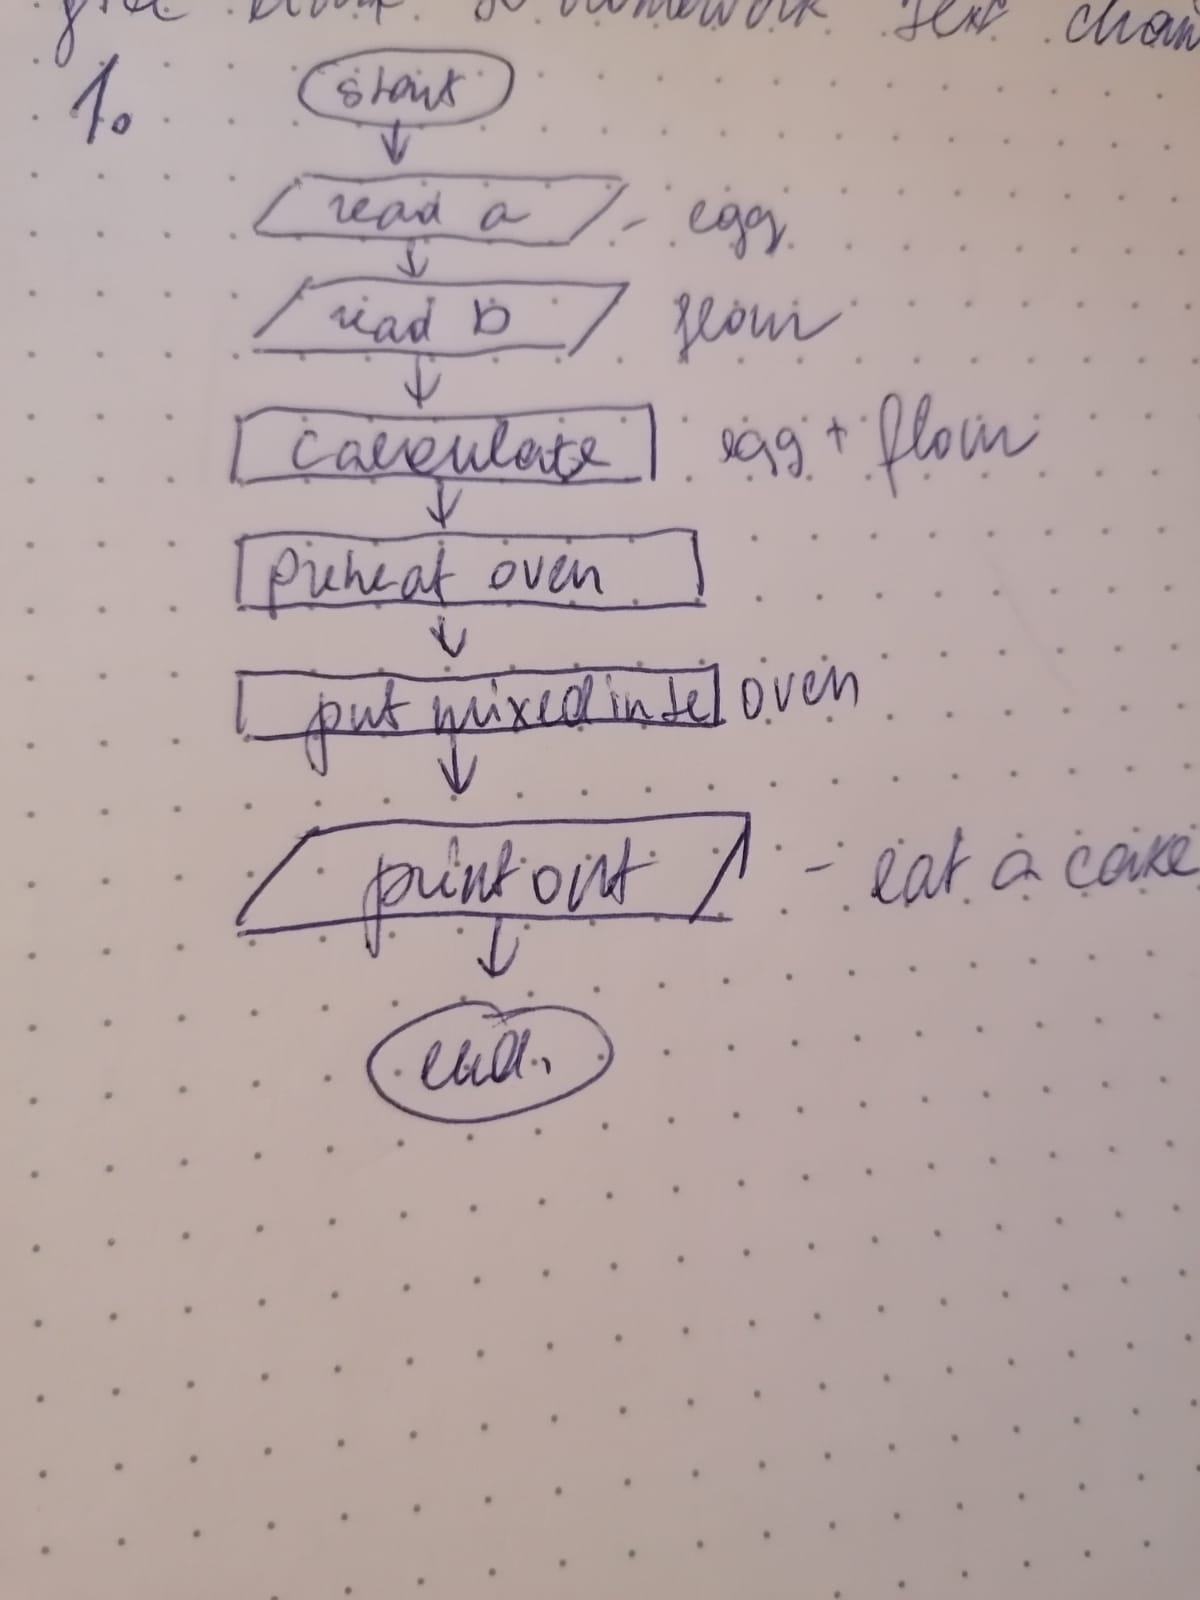 homework text
1.
start
read a - egg
read b flour
calculate egg + flour
preheat oven
put mixed in to oven
print out - eat a cake
end.